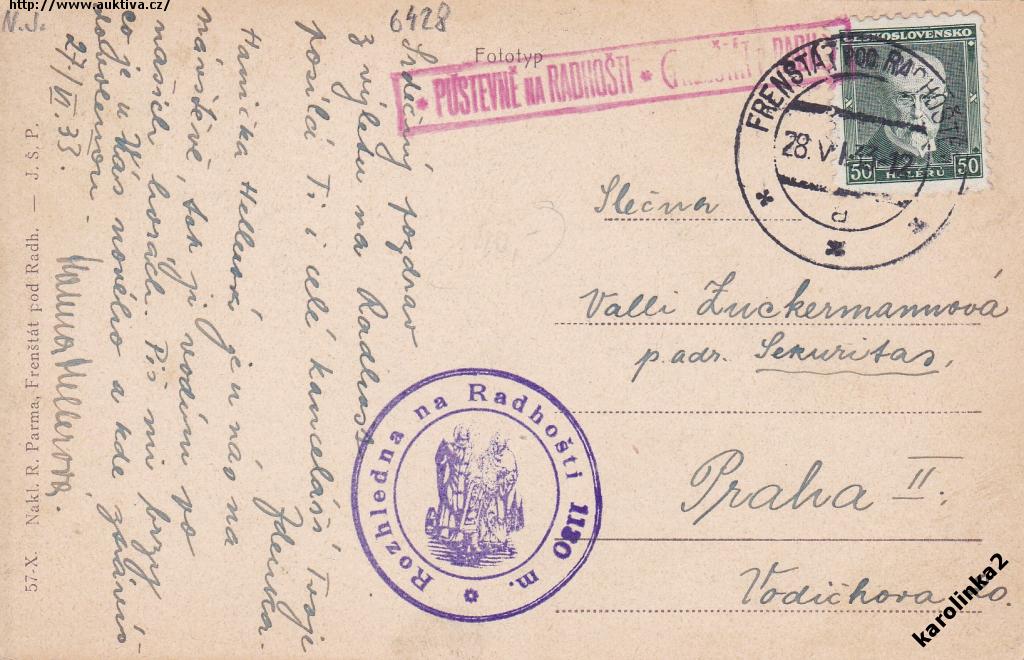 http://www.auktiva.cz/
N.J.
6428
Fototyp
* PŮSTEVNĚ NA RADHOŠTI *
FRENŠTÁT POD RADHOŠTĚM
28. VI. 33-12
ČESKOSLOVENSKO
50 HALÉŘŮ 50
Srdečný pozdrav
z výletu na Radhošť
posílá Ti i celé kanceláři Tvoje
Zdenina.
Hanička Hellerová je u nás na
návštěvě, tak ji vodím po
našich horách. Piš mi brzy
co je u Vás nového a kde
dovolenou.
27/VI 33.
Hanna Hellerová.
Slečna
Valli Zuckermannová
p. adr. Sekuritas,
Praha II.
Vodičkova
Rozhledna na Radhošti 1130 m.
57-X. Nakl. R. Parma, Frenštát pod Radh. — J. Š. P.
karolinka2